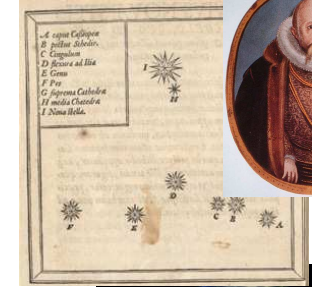 A caput Cassiopeæ
B pectus Schedir.
C Cingulum
D flexura ad Ilia
E Genu
F Pes
G suprema Cathedræ
H media Chatedræ
I Noua stella.
I
H
D
F
E
C
B
A